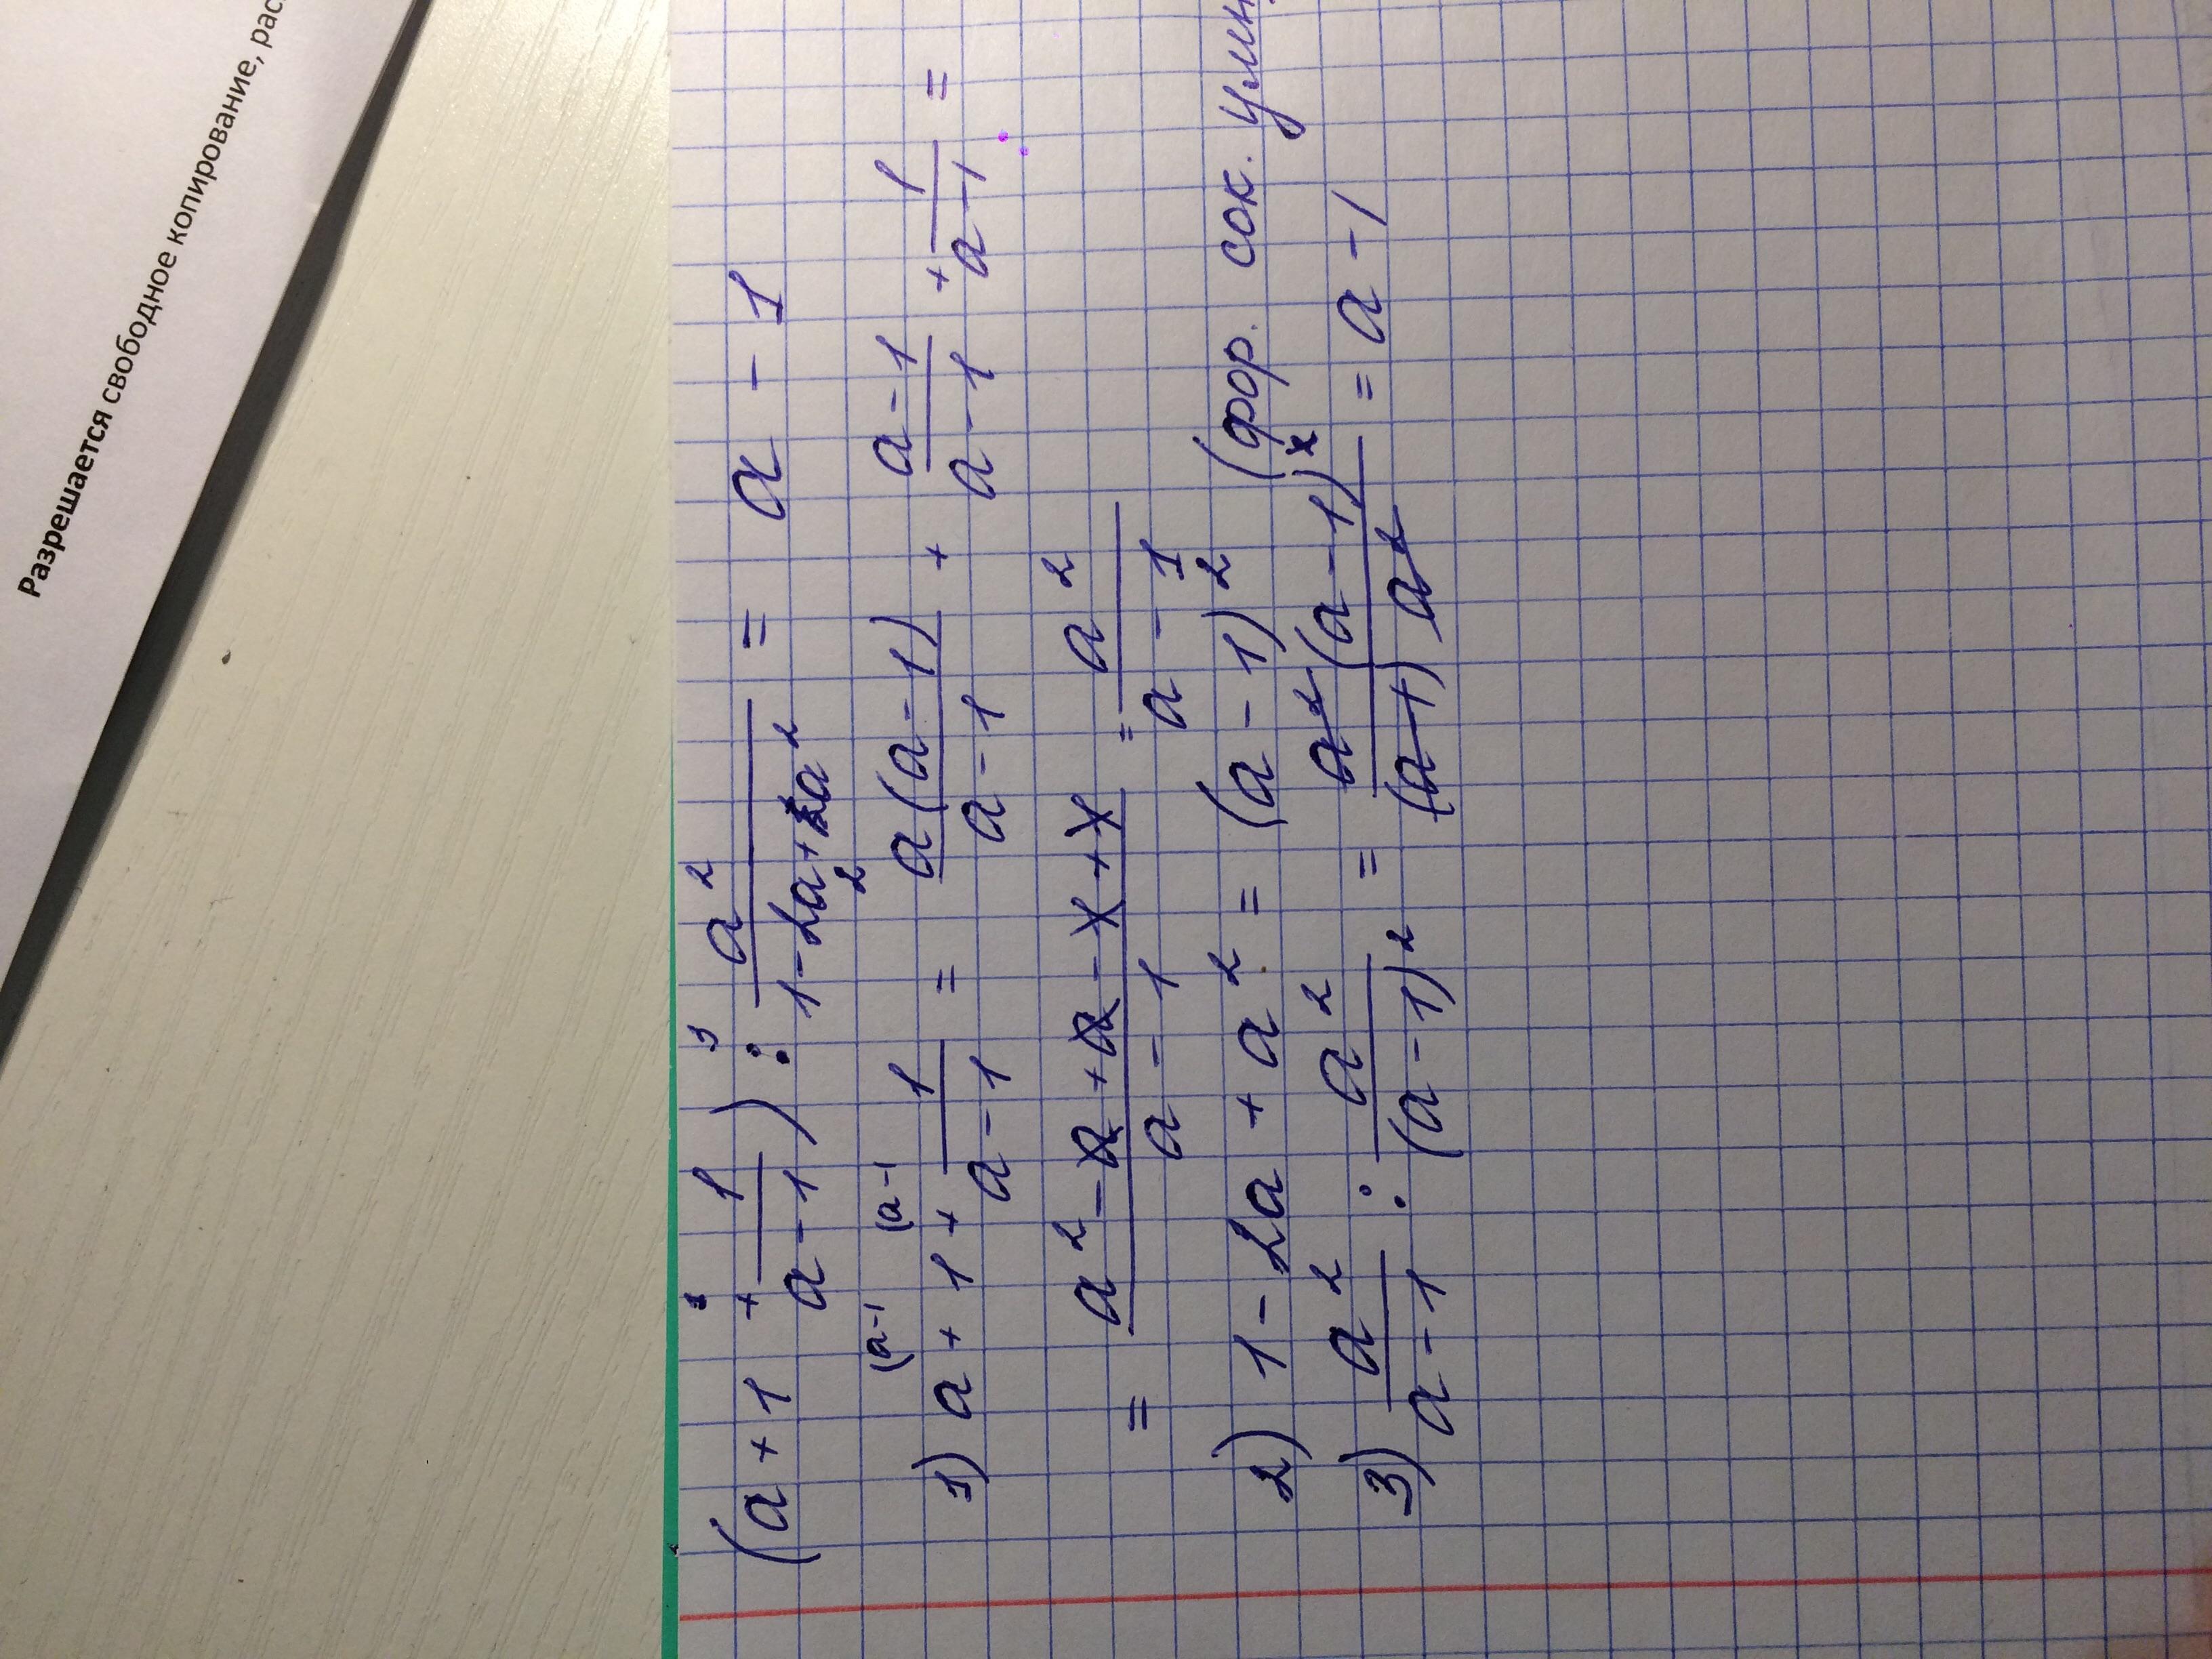 Разрешается свободное копирование, рас
(a + 1 + 1/(a - 1)) : a²/(1 - 2a + a²) = a - 1
1) a + 1 + 1/(a - 1) = a(a - 1)/(a - 1) + (a - 1)/(a - 1) + 1/(a - 1) =
= (a² - a + a - 1 + 1)/(a - 1) = a²/(a - 1)
2) 1 - 2a + a² = (a - 1)² (фор. сок. умн
3) a²/(a - 1) : a²/(a - 1)² = a²(a - 1)²/((a - 1) a²) = a - 1